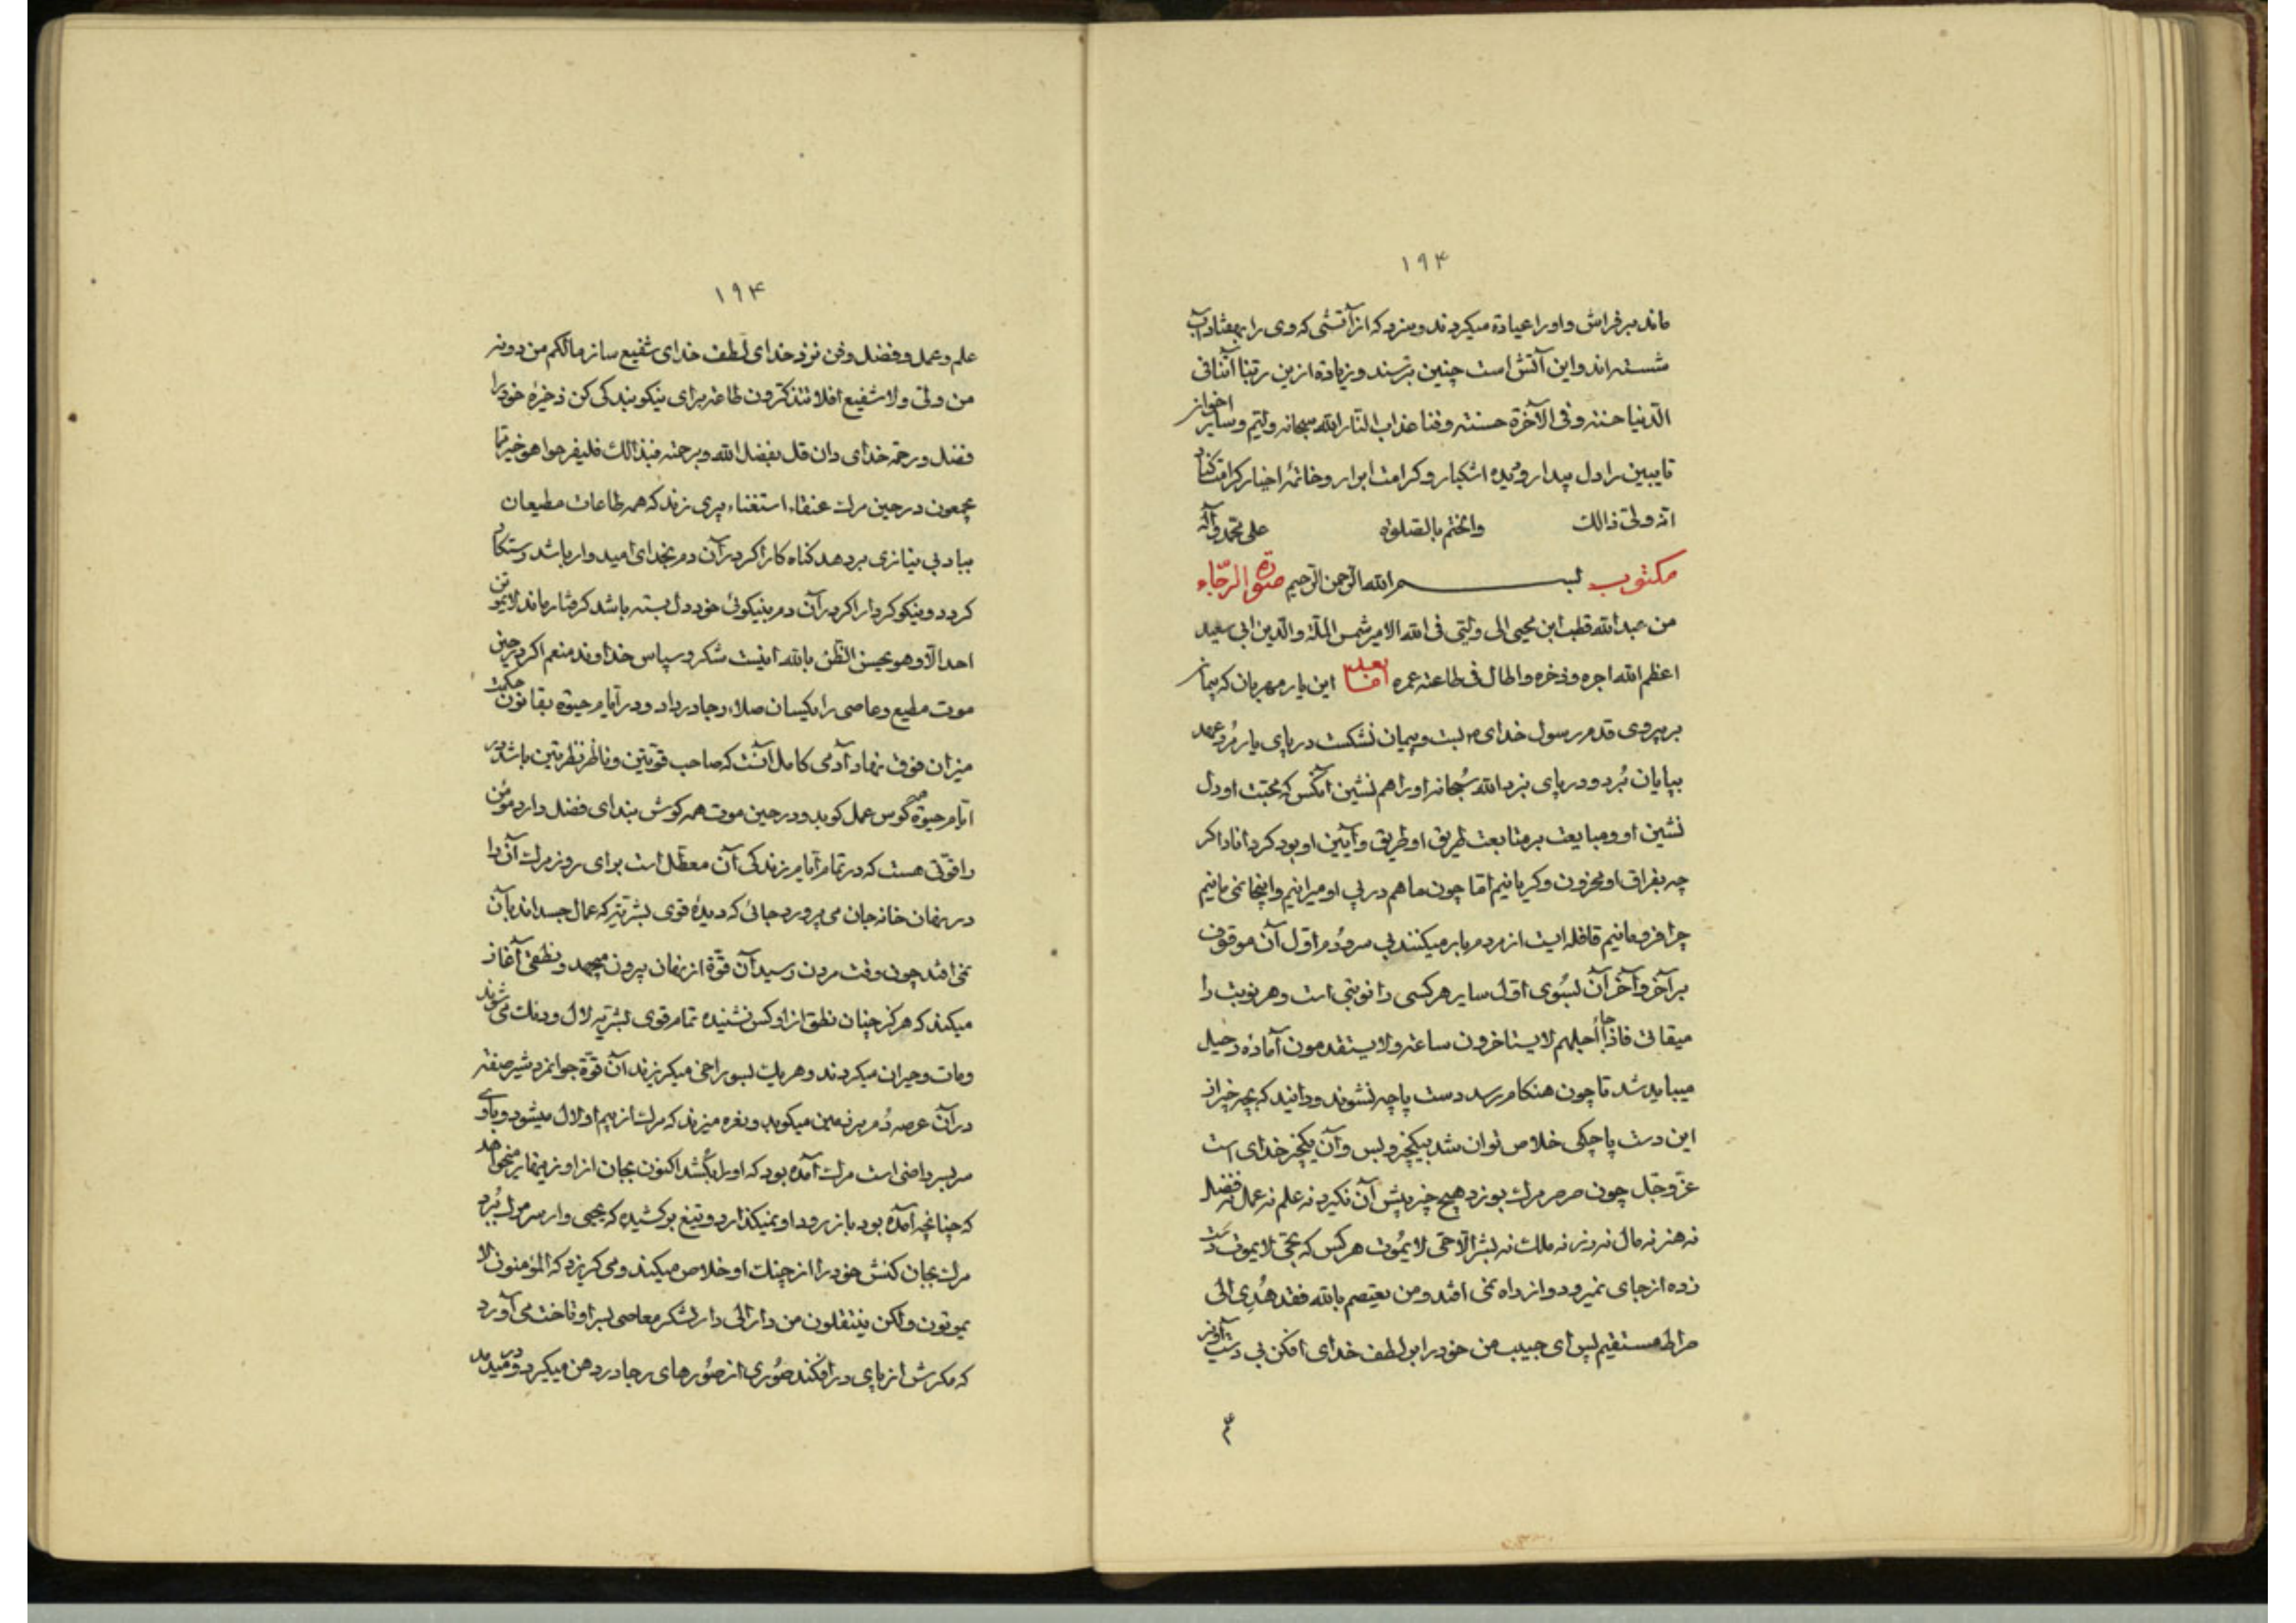 ۱۹۴
ماند بر فراش و او را عیادة میکردند و سزد که از آتشی که وی را بهفتاد آب
شسته اند و این آتش است چنین ترسند و زیادة ازین ربنا آتنا فی
الدنیا حسنة و فی الآخرة حسنة و قنا عذاب النار الله سبحانه ولیم و سایر اخوان
تایبین را دل بیدار و دیده اشکبار و کرامت ابرار و خاتمهٔ اخیار کرامت کناد
انه ولی ذالك واختم بالصلوة علی محمد و آله
مکتوب بسم الله الرحمن الرحیم صورة الرجاء
من عبدالله قطب ابن محیی الی ولیی فی الله الامیر شمس الملة والدین ابی سعید
اعظم الله اجره و ذخره و اطال فی طاعته عمره اما بعد این یار مهربان که پیمان
بر پیروی قدم رسول خدای بست و پیمان نشکست در پای یار مرد و عهد
بپایان برد و در پای برد الله سبحانه او را هم نشین آنکس که محبت او دل
نشین او و مبایعت بر متابعت طریق او طریق و آیین او بود کرداناد اکر
چه بفراق او محزون و کریانیم اما چون ما هم در پی او میرانیم و اینجا نمی مانیم
چرا فرو مانیم قافله ایست از مردم بار میکنند بی سر و دم اول آن موقوف
بر آخر و آخر آن بسوی اول سایر هر کسی را نوبتی است و هر نوبت را
میقاتی فاذا جاء اجلهم لا یستاخرون ساعة ولا یستقدمون آمادهٔ رحیل
میباید شد تا چون هنکام رسد دست پاچه نشوند و دانید که بچه چیز از
این دست پاچکی خلاص توان شد بیکچیز و بس و آن یکچیز خدای است
عز و جل چون صرصر مرك بوزد هیچ چیز پیش آن نکیرد نه علم نه عمل نه فضل
نه هنر نه مال نه زر نه ملك نه بشر الا حی لا یموت هر کس که بحی لا یموت دست
زده از جای نمیرود و از راه نمی افتد و من یعتصم بالله فقد هدی الی
صراط مستقیم پس ای حبیب من خود را بر لطف خدای افکن بی دست آویز
۱۹۴
علم و عمل و فضل و فن نزد خدای لطف خدای شفیع ساز مالکم من دونه
من ولی ولا شفیع افلا تتذکرون طاعة برای نیکو بندکی کن ذخیرهٔ خود را
فضل و رحمة خدای دان قل بفضل الله و برحمته فبذالك فلیفرحوا هو خیر مما
یجمعون در حین مرك عنقاء استغناء پری زند که همه طاعات مطیعان
بباد بی نیازی بر دهد کناه کار اکر در آن دم بخدای امیدوار باشد رستکار
کردد و نیکو کردار اکر در آن دم بنیکوئی خود دل بسته باشد کرفتار ماند لا یموتن
احد الا و هو یحسن الظن بالله اینست شکر و سپاس خداوند منعم اکر در حین
موت مطیع و عاصی را یکسان صلاء رجا در داد و در ایام حیوة بقانون حکمت
میزان خوف نهاد آدمی کامل آنست که صاحب قوتین و ناظر نظرتین باشد در
ایام حیوة کوس عمل کوبد و در حین موت همه کوش بندای فضل دارد مؤمن
را قوتی هست که در تمام ایام زندکی آن معطل است برای روز مرك آن را
در نهان خانه جان می پرورد جائی که دیدهٔ قوی بشریة که عمال جسد اند بآن
نمی افتد چون وقت مردن رسید آن قوة از نهان بیرون میجهد و نطقی آغاز
میکند که هرکز چنان نطق از او کس نشنیده تمام قوی بشریه لال و دنك می شوند
و مات و حیران میکردند و هر یك بسوراخی میکریزند آن قوة جوانمرد شیر صفة
در آن عرصه دم بر زمین میکوبد و نعره میزند که مرك از بیم او لال میشود و با او
سر بسر راضی است مرك آمده بود که او را بکشد اکنون بجان از او زینهار میخواهد
که چنانچه آمده بود باز رود او نمیکذارد و تیغ بر کشیده که یحیی وار سر مرك برد
مرك بجان کنش خود را از چنك او خلاص میکند و می کریزد که المؤمنون لا
یموتون ولکن ینتقلون من دار الی دار لشکر معاصی بسر او تاخت می آورد
که مکرش از پای در افکند صوری از صورهای رجا در دهن میکیرد و در میدمد